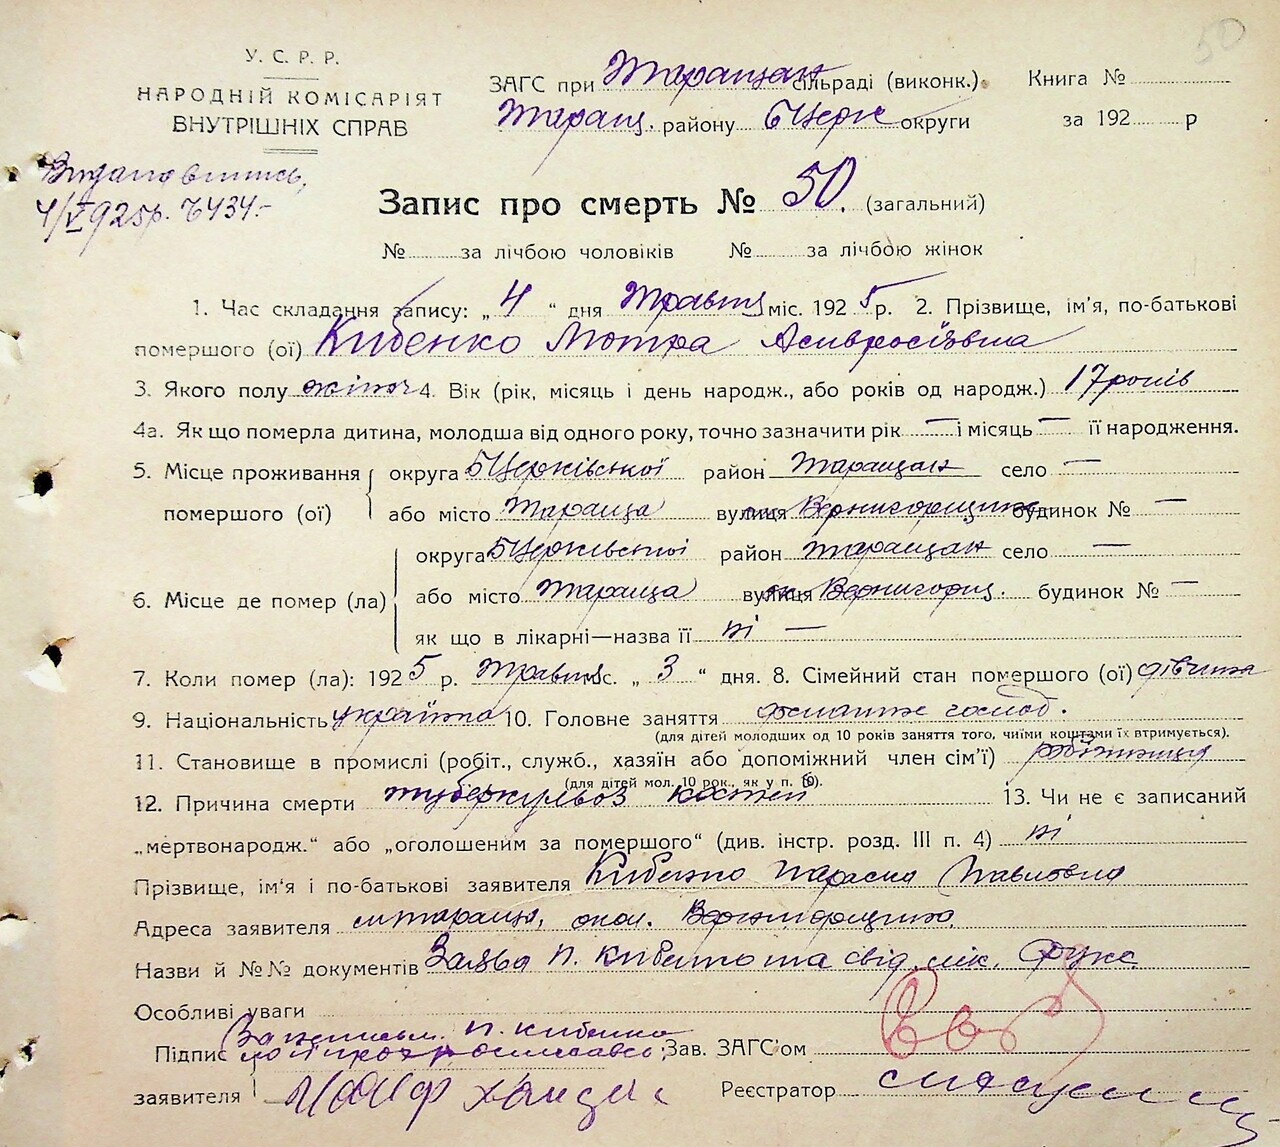 50
У. С. Р. Р.
НАРОДНІЙ КОМІСАРІЯТ
ВНУТРІШНІХ СПРАВ
ЗАГС при Таращан сільраді (виконк.)
Таращ. району БЦерк округи
Книга №
за 192 р
4/V 925р. №434.-
Запис про смерть № 50. (загальний)
№ за лічбою чоловіків № за лічбою жінок
1. Час складання запису: „ 4 “ дня Травня міс. 192 5 р. 2. Прізвище, ім'я, по-батькові
помершого (ої) Кибенко Мотра
3. Якого полу жіноч 4. Вік (рік, місяць і день народж., або років од народж.) 17 років
4а. Як що померла дитина, молодша від одного року, точно зазначити рік — і місяць — її народження.
5. Місце проживання помершого (ої) округа БЦерківської район Таращан село —
або місто Тараща вулиця Вернигорщина будинок № —
6. Місце де помер (ла) округа БЦерківської район Таращан село —
або місто Тараща вулиця Вернигорщ. будинок № —
як що в лікарні—назва її ні —
7. Коли помер (ла): 192 5 р. Травня міс. „ 3 “ дня. 8. Сімейний стан помершого (ої) дівчина
9. Національність українка 10. Головне заняття домашнє господ.
(для дітей молодших од 10 років заняття того, чиїми коштами їх втримується).
11. Становище в промислі (робіт., служб., хазяїн або допоміжний член сім'ї) робітниця
(для дітей мол. 10 рок., як у п. 10).
12. Причина смерти туберкульоз костей 13. Чи не є записаний
„мертвонародж.“ або „оголошеним за помершого“ (див. інстр. розд. III п. 4) ні
Прізвище, ім'я і по-батькові заявителя Кибенко Параска Павловна
Адреса заявителя м. Тараща, окол. Вернигорщина.
Назви й №№ документів Заява П. Кибенко та свід. лік. Фукс
Особливі уваги
Підпис заявителя За неписьм. П. Кибенко
Зав. ЗАГС'ом
Реєстратор